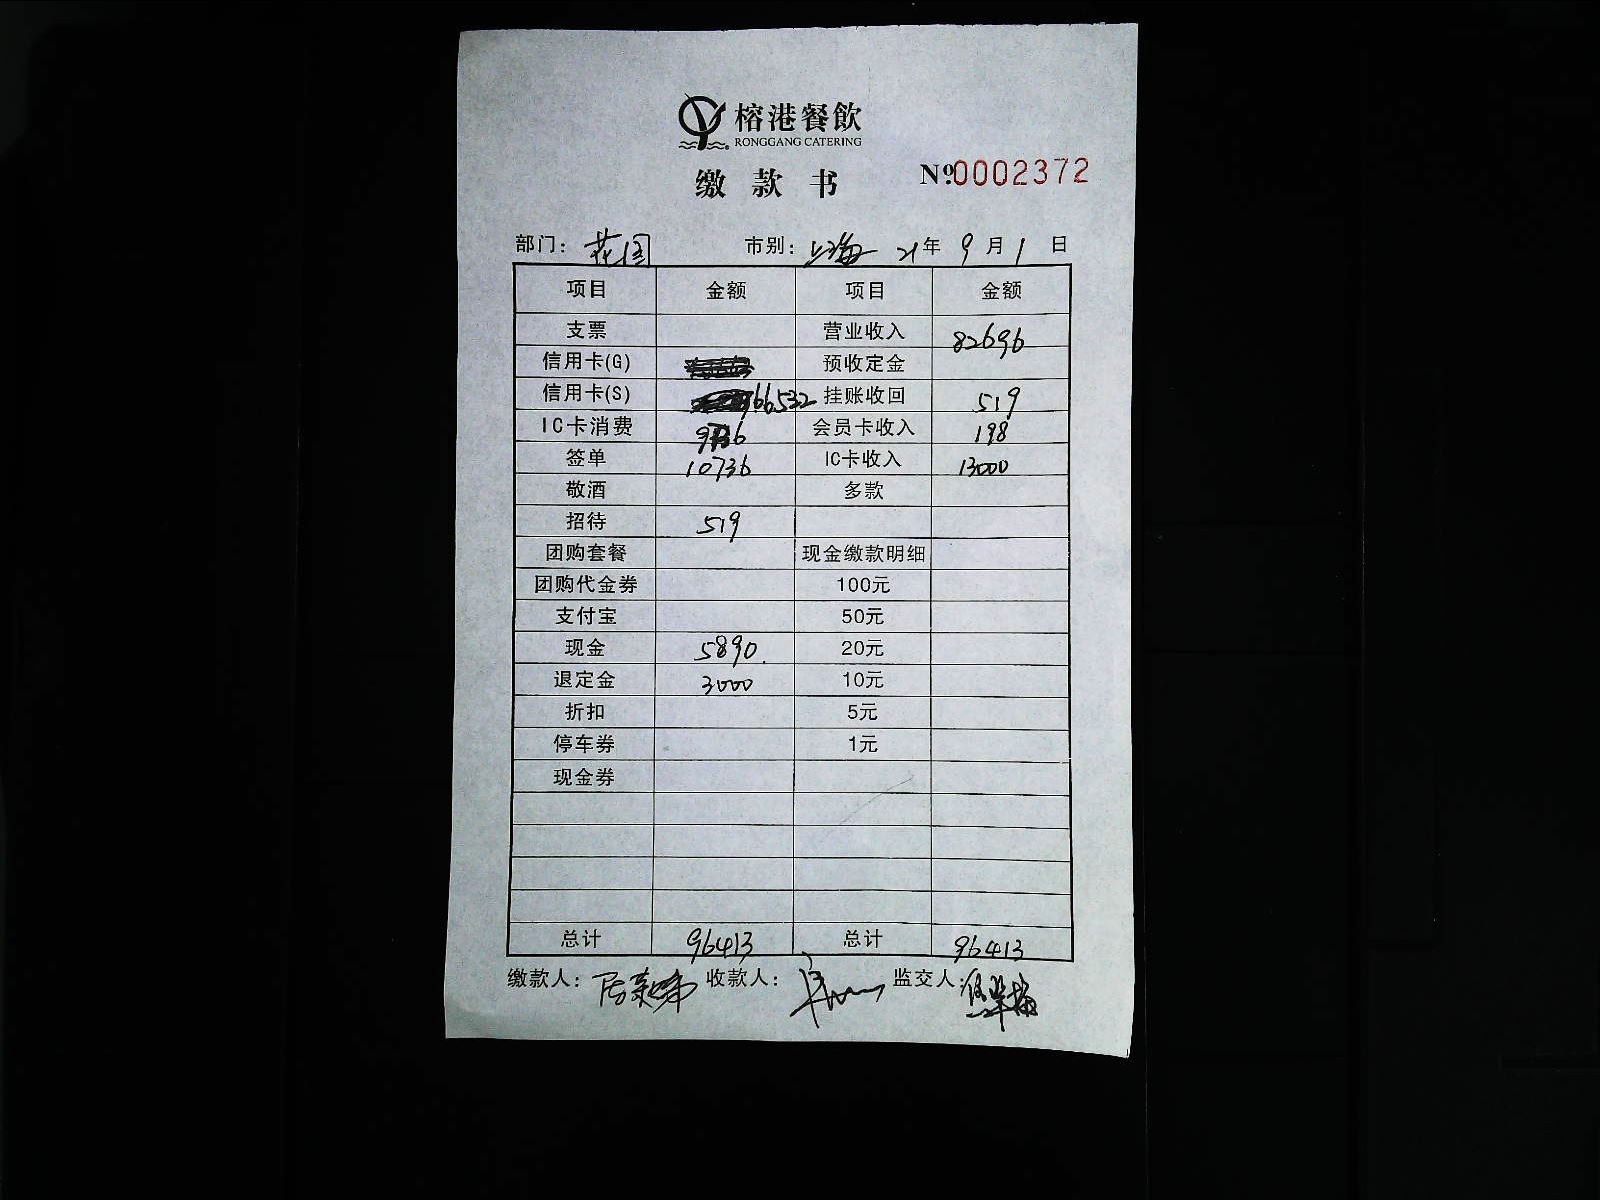 榕港餐飲
RONGGANG CATERING
缴款书
№0002372
部门：花园 市别：上海 21年9月1日
项目 金额 项目 金额
支票 营业收入 82696
信用卡(G) 预收定金
信用卡(S) 66532 挂账收回 519
IC卡消费 9736 会员卡收入 198
签单 10736 IC卡收入 13000
敬酒 多款
招待 519
团购套餐 现金缴款明细
团购代金券 100元
支付宝 50元
现金 5890. 20元
退定金 3000 10元
折扣 5元
停车券 1元
现金券
总计 96413 总计 96413
缴款人： 收款人： 监交人：